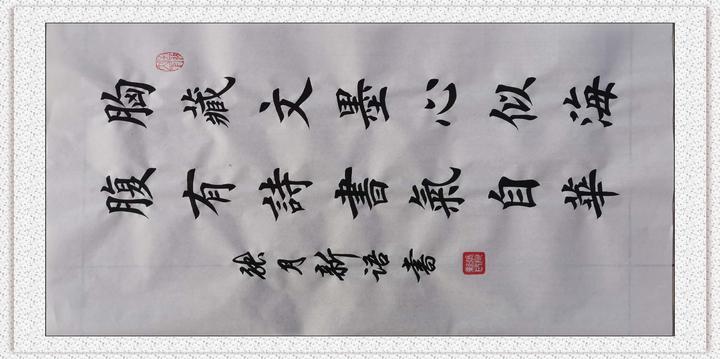 胸藏文墨心似海
腹有詩書氣自華
月新语書